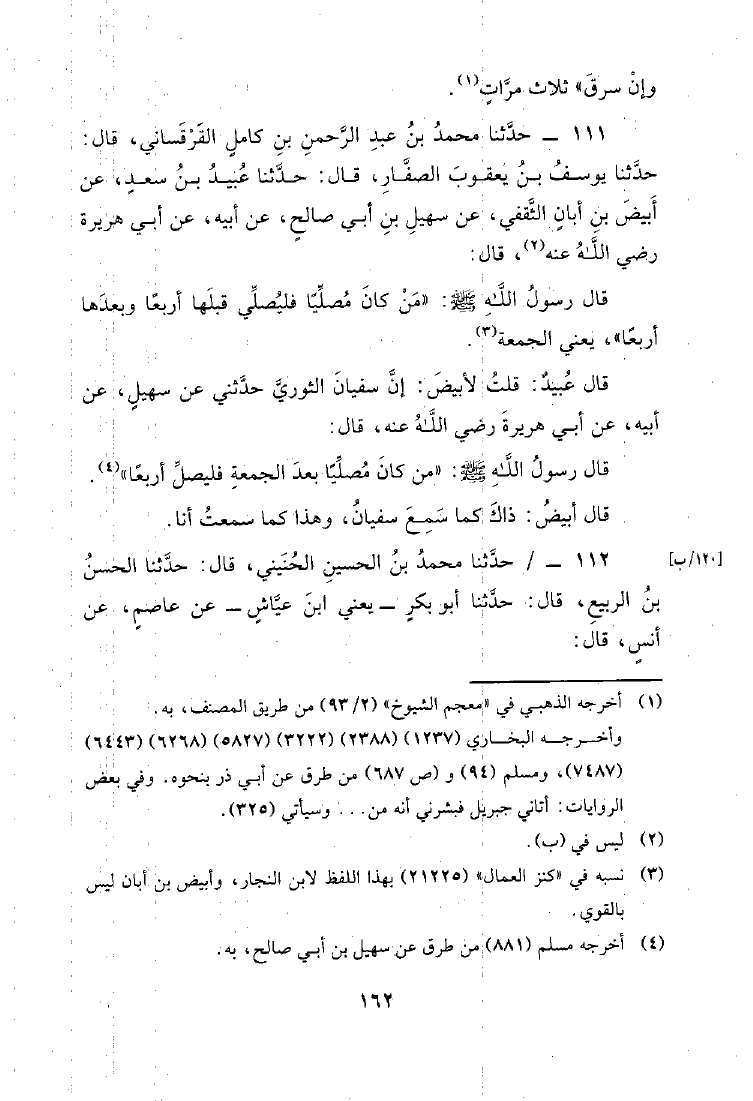 وإنْ سرقَ» ثلاث مرَّاتٍ(١).
١١١ ــ حدَّثنا محمدُ بنُ عبدِ الرَّحمنِ بنِ كاملٍ القَرْقَساني، قال:
حدَّثنا يوسفُ بـنُ يعقـوبَ الصفَّـارِ، قـال: حـدَّثنا عُبيـدُ بـنُ سعـدٍ، عن
أَبيضَ بنِ أبانٍ الثَّقفي، عن سهيلِ بنِ أبي صالحٍ، عن أبيه، عن أبـي هريرة
رضي اللَّـٰهُ عنه(٢)، قال:
قال رسولُ اللَّـٰهِ ﷺ: «مَنْ كانَ مُصلِّيًا فليُصلِّي قبلَها أربعًا وبعدَها
أربعًا»، يعني الجمعة(٣).
قال عُبيدٌ: قلتُ لأبيضَ: إنَّ سفيانَ الثوريَّ حدَّثني عن سهيلٍ، عن
أبيه، عن أبـي هريرةَ رضي اللَّـٰهُ عنه، قال:
قال رسولُ اللَّـٰهِ ﷺ: «من كانَ مُصلِّيًا بعدَ الجمعةِ فليصلِّ أربعًا»(٤).
قال أبيضُ: ذاكَ كما سَمِعَ سفيانُ، وهذا كما سمعتُ أنا.
[١٢٠/ب] ١١٢ ــ / حدَّثنا محمدُ بنُ الحسينِ الحُنَيني، قال: حدَّثنا الحسنُ
بنُ الربيعِ، قال: حدَّثنا أبو بكرٍ ــ يعني ابنَ عيَّاشٍ ــ عن عاصمٍ، عن
أنسٍ، قال:
(١) أخرجه الذهبي في «معجم الشيوخ» (٢/ ٩٣) من طريق المصنف، به.
وأخـرجـه البخـاري (١٢٣٧) (٢٣٨٨) (٣٢٢٢) (٥٨٢٧) (٦٢٦٨) (٦٤٤٣)
(٧٤٨٧)، ومسلم (٩٤) و (ص ٦٨٧) من طرق عن أبـي ذر بنحوه. وفي بعض
الروايات: أتاني جبريل فبشرني أنه من... وسيأتي (٣٢٥).
(٢) ليس في (ب).
(٣) نسبه في «كنز العمال» (٢١٢٢٥) بهذا اللفظ لابن النجار، وأبيض بن أبان ليس
بالقوي.
(٤) أخرجه مسلم (٨٨١) من طرق عن سهيل بن أبـي صالح، به.
١٦٢